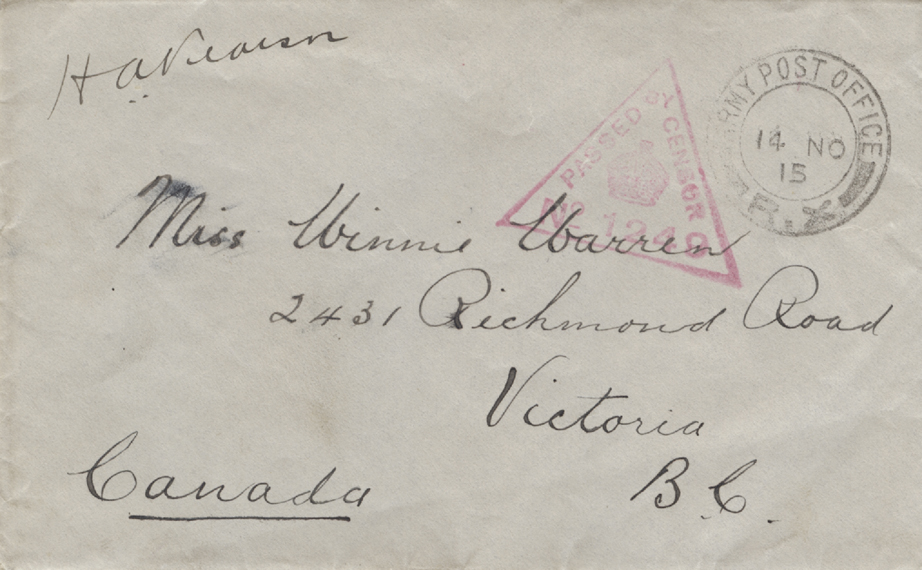 H A Pearson
PASSED BY CENSOR
No 1249
ARMY POST OFFICE
14 NO
15
R.X
Miss Winnie Warren
2431 Richmond Road
Victoria
B.C.
Canada